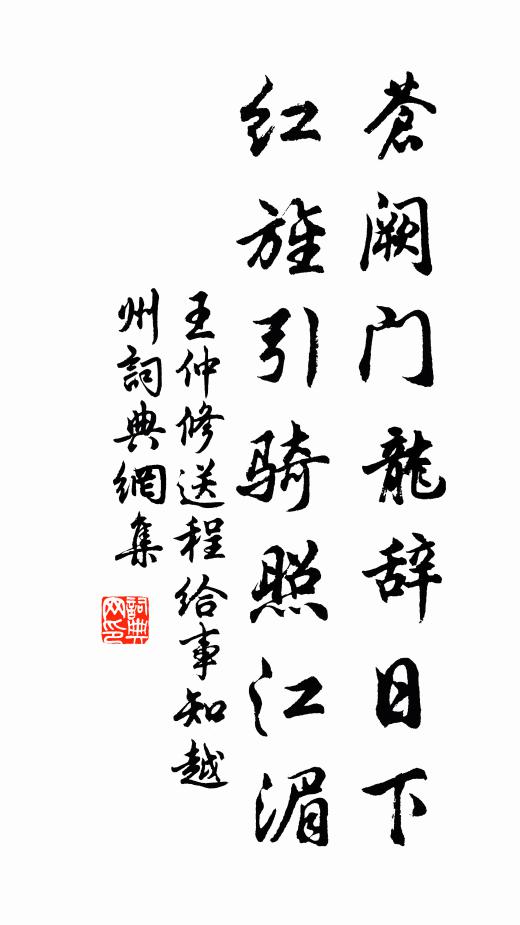 蒼阙门龍辞日下
红旌引骑照江湄
王仲修送程给事知越
州詞典網集
詞典
网印